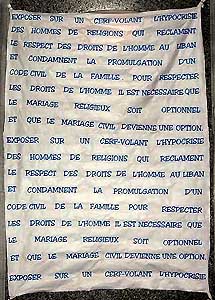 EXPOSER SUR UN CERF-VOLANT L'HYPOCRISIE
DES HOMMES DE RELIGIONS QUI RÉCLAMENT
LE RESPECT DES DROITS DE L'HOMME AU LIBAN
ET CONDAMNENT LA PROMULGATION D'UN
CODE CIVIL DE LA FAMILLE. POUR RESPECTER
LES DROITS DE L'HOMME IL EST NECESSAIRE QUE
LE MARIAGE RELIGIEUX SOIT OPTIONNEL
ET QUE LE MARIAGE CIVIL DEVIENNE UNE OPTION.
EXPOSER SUR UN CERF-VOLANT L'HYPOCRISIE
DES HOMMES DE RELIGIONS QUI RÉCLAMENT
LE RESPECT DES DROITS DE L'HOMME AU LIBAN
ET CONDAMNENT LA PROMULGATION D'UN
CODE CIVIL DE LA FAMILLE. POUR RESPECTER
LES DROITS DE L'HOMME IL EST NECESSAIRE QUE
LE MARIAGE RELIGIEUX SOIT OPTIONNEL
ET QUE LE MARIAGE CIVIL DEVIENNE UNE OPTION.
EXPOSER SUR UN CERF-VOLANT L'HYPOCRISIE